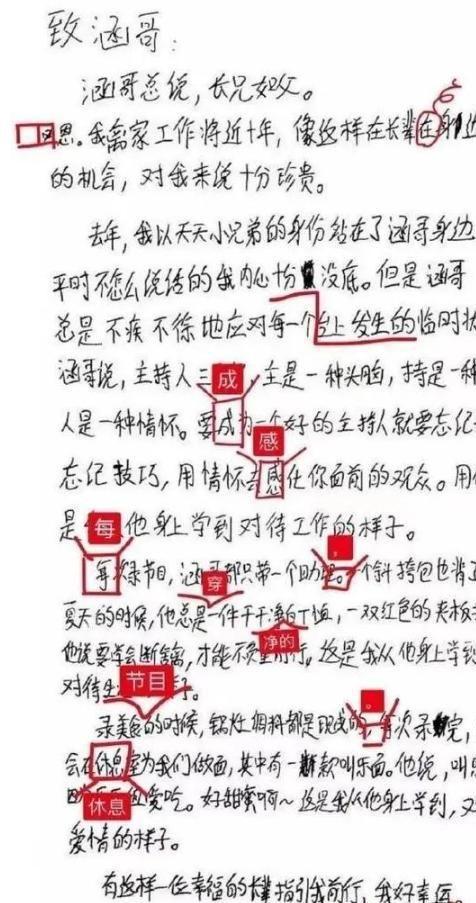 致涵哥:
涵哥总说,长兄如父。
恩。我离家工作将近十年,像这样在长辈在身边
的机会,对我来说十分珍贵。
去年,我以天天小兄弟的身份站在了涵哥身边
平时不怎么说话的我内心十分没底。但是涵哥
总是不疾不徐地应对每一个台上发生的临时状
涵哥说,主持人三
成
,主是一种头脑,持是一种
人是一种情怀。要成为一个好的主持人就要忘记
感
忘记技巧,用情怀去感化你面前的观众。用
每
是 他身上学到对待工作的样子。
,
每次录节目,涵哥都只带一个助理。一个斜挎包也背了
穿
夏天的时候,他总是一件干干净白T恤,一双红色的夹板
净的
他说要学会断舍离,才能不负重前行。这是我从他身上学到
节目
对待生 子。
。
录美食的时候,锅灶调料都是现成的,每次录完,
会在休息室为我们做面,其中有一款叫乐面。他说,叫
休息
爱吃。好甜蜜啊~这是我从他身上学到,对
爱情的样子。
有这样一位幸福的长辈指引我前行,我好幸运